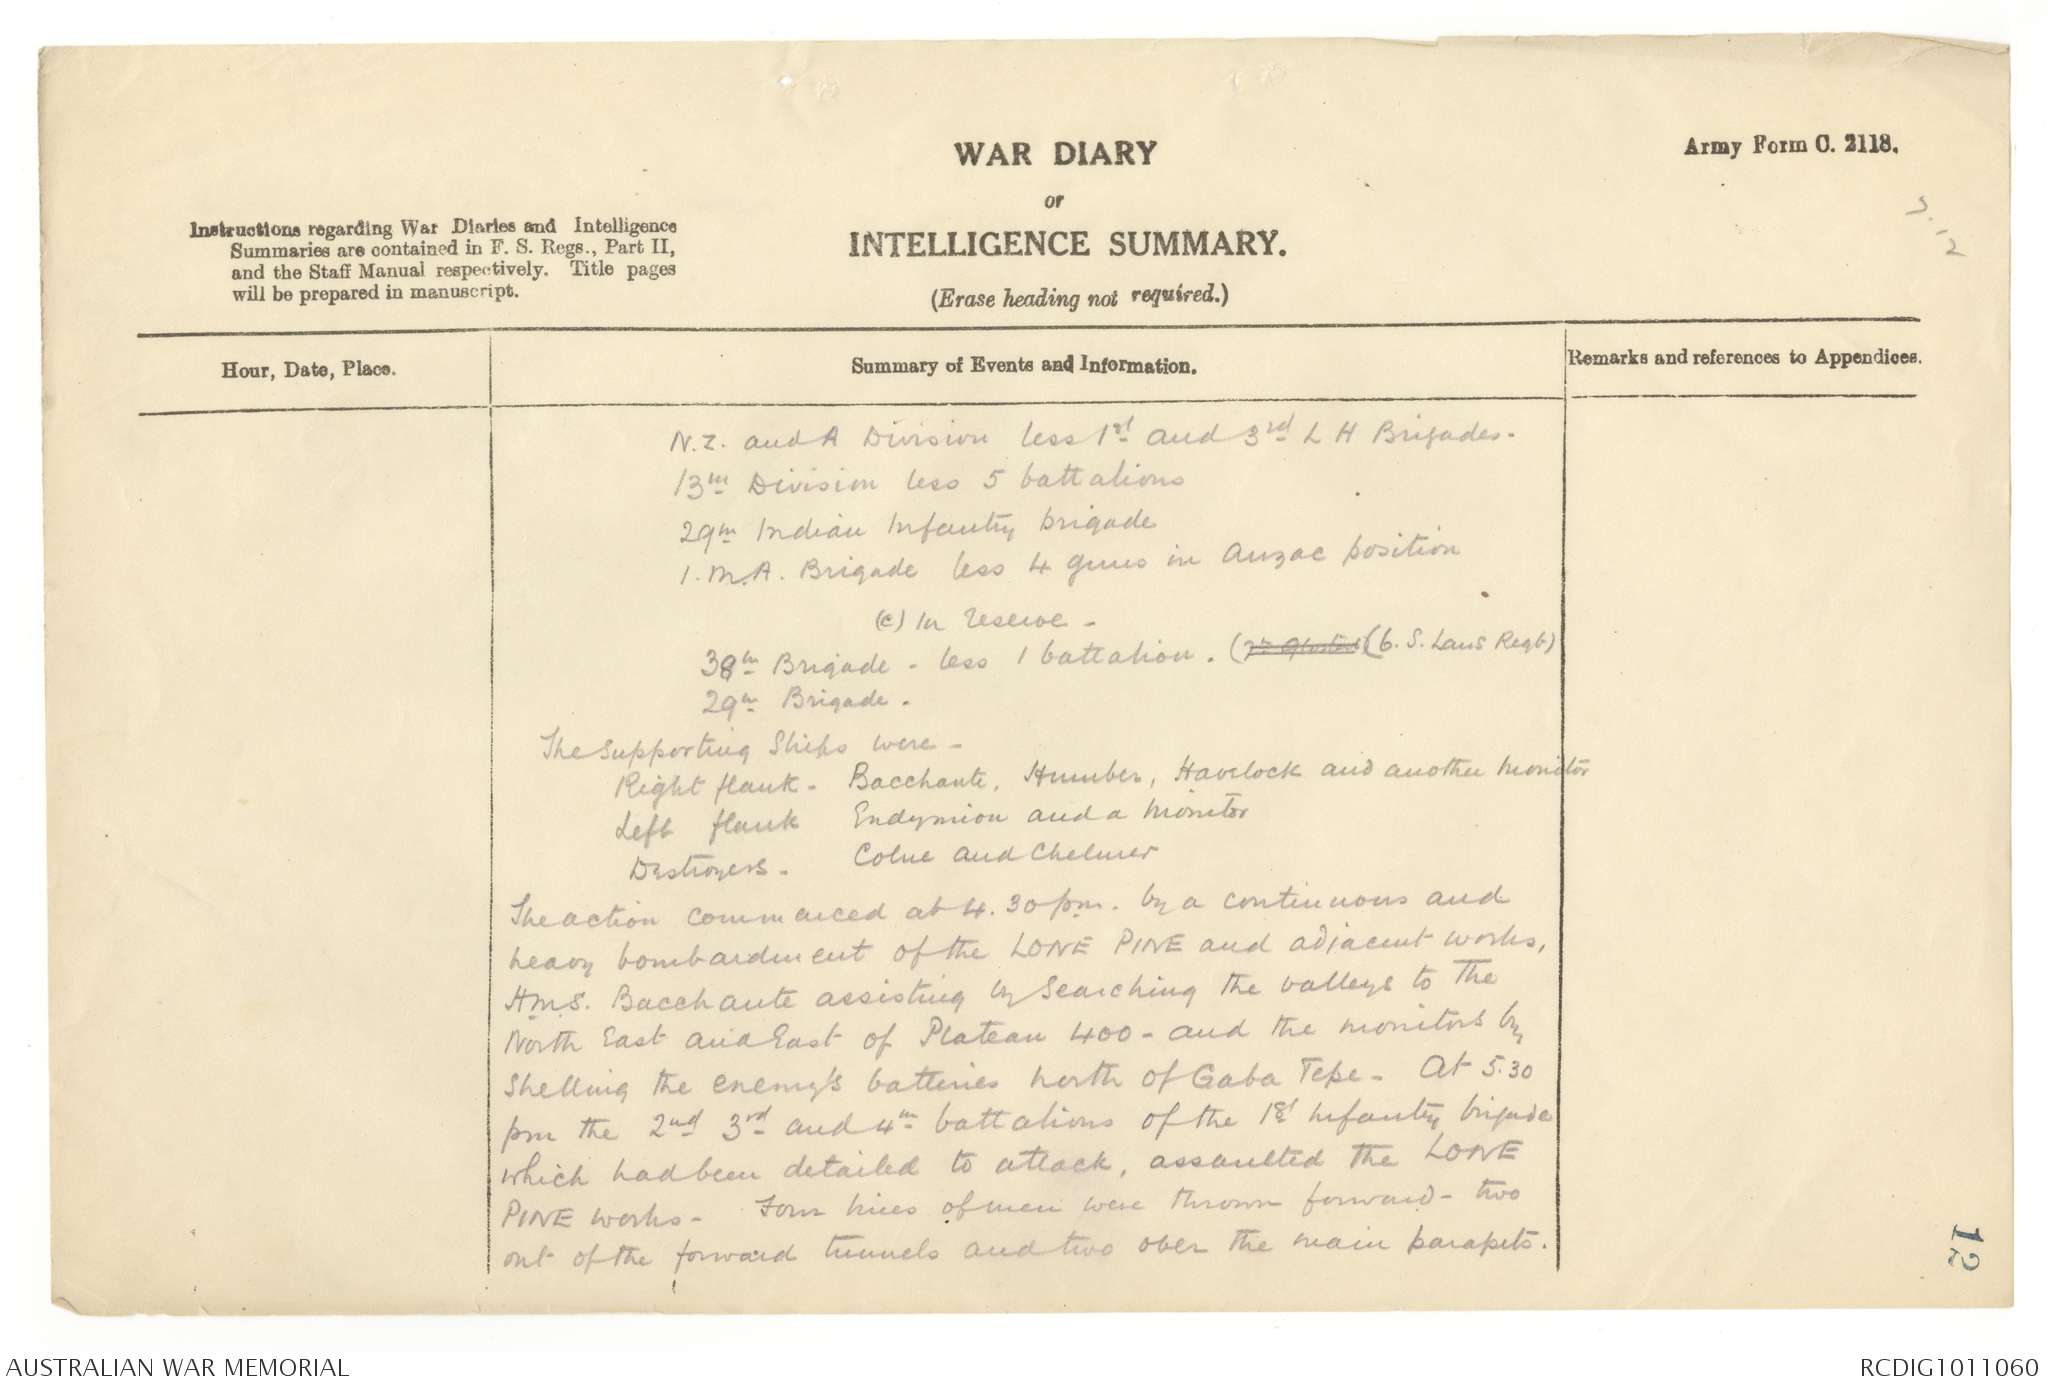 WAR DIARY
or
INTELLIGENCE SUMMARY.
(Erase heading not required.)
Army Form C. 2118.
Instructions regarding War Diaries and Intelligence
Summaries are contained in F. S. Regs., Part II,
and the Staff Manual respectively. Title pages
will be prepared in manuscript.
Hour, Date, Place.
Summary of Events and Information.
Remarks and references to Appendices.
N.Z. and A Division less 1st and 3rd L H Brigades-
13th Division less 5 battalions
29th Indian Infantry brigade
1. M.A. Brigade less 4 guns in Anzac position
(c) In reserve -
38th Brigade - less 1 battalion. (6. S. Lans Regt)
29th Brigade.
The supporting Ships were -
Right flank - Bacchante, Humber, Havelock and another monitor
Left flank Endymion and a monitor
Destroyers - Colne and Chelmer
The action commenced at 4.30 pm. by a continuous and
heavy bombardment of the LONE PINE and adjacent works,
H.M.S. Bacchante assisting by searching the valleys to the
North East and East of Plateau 400 - and the monitors by
shelling the enemy's batteries north of Gaba Tepe - At 5.30
pm the 2nd 3rd and 4th battalions of the 1st Infantry brigade
which had been detailed to attack, assaulted the LONE
PINE works - Four lines of men were thrown forward - two
out of the forward tunnels and two over the main parapets.
12
AUSTRALIAN WAR MEMORIAL
RCDIG1011060